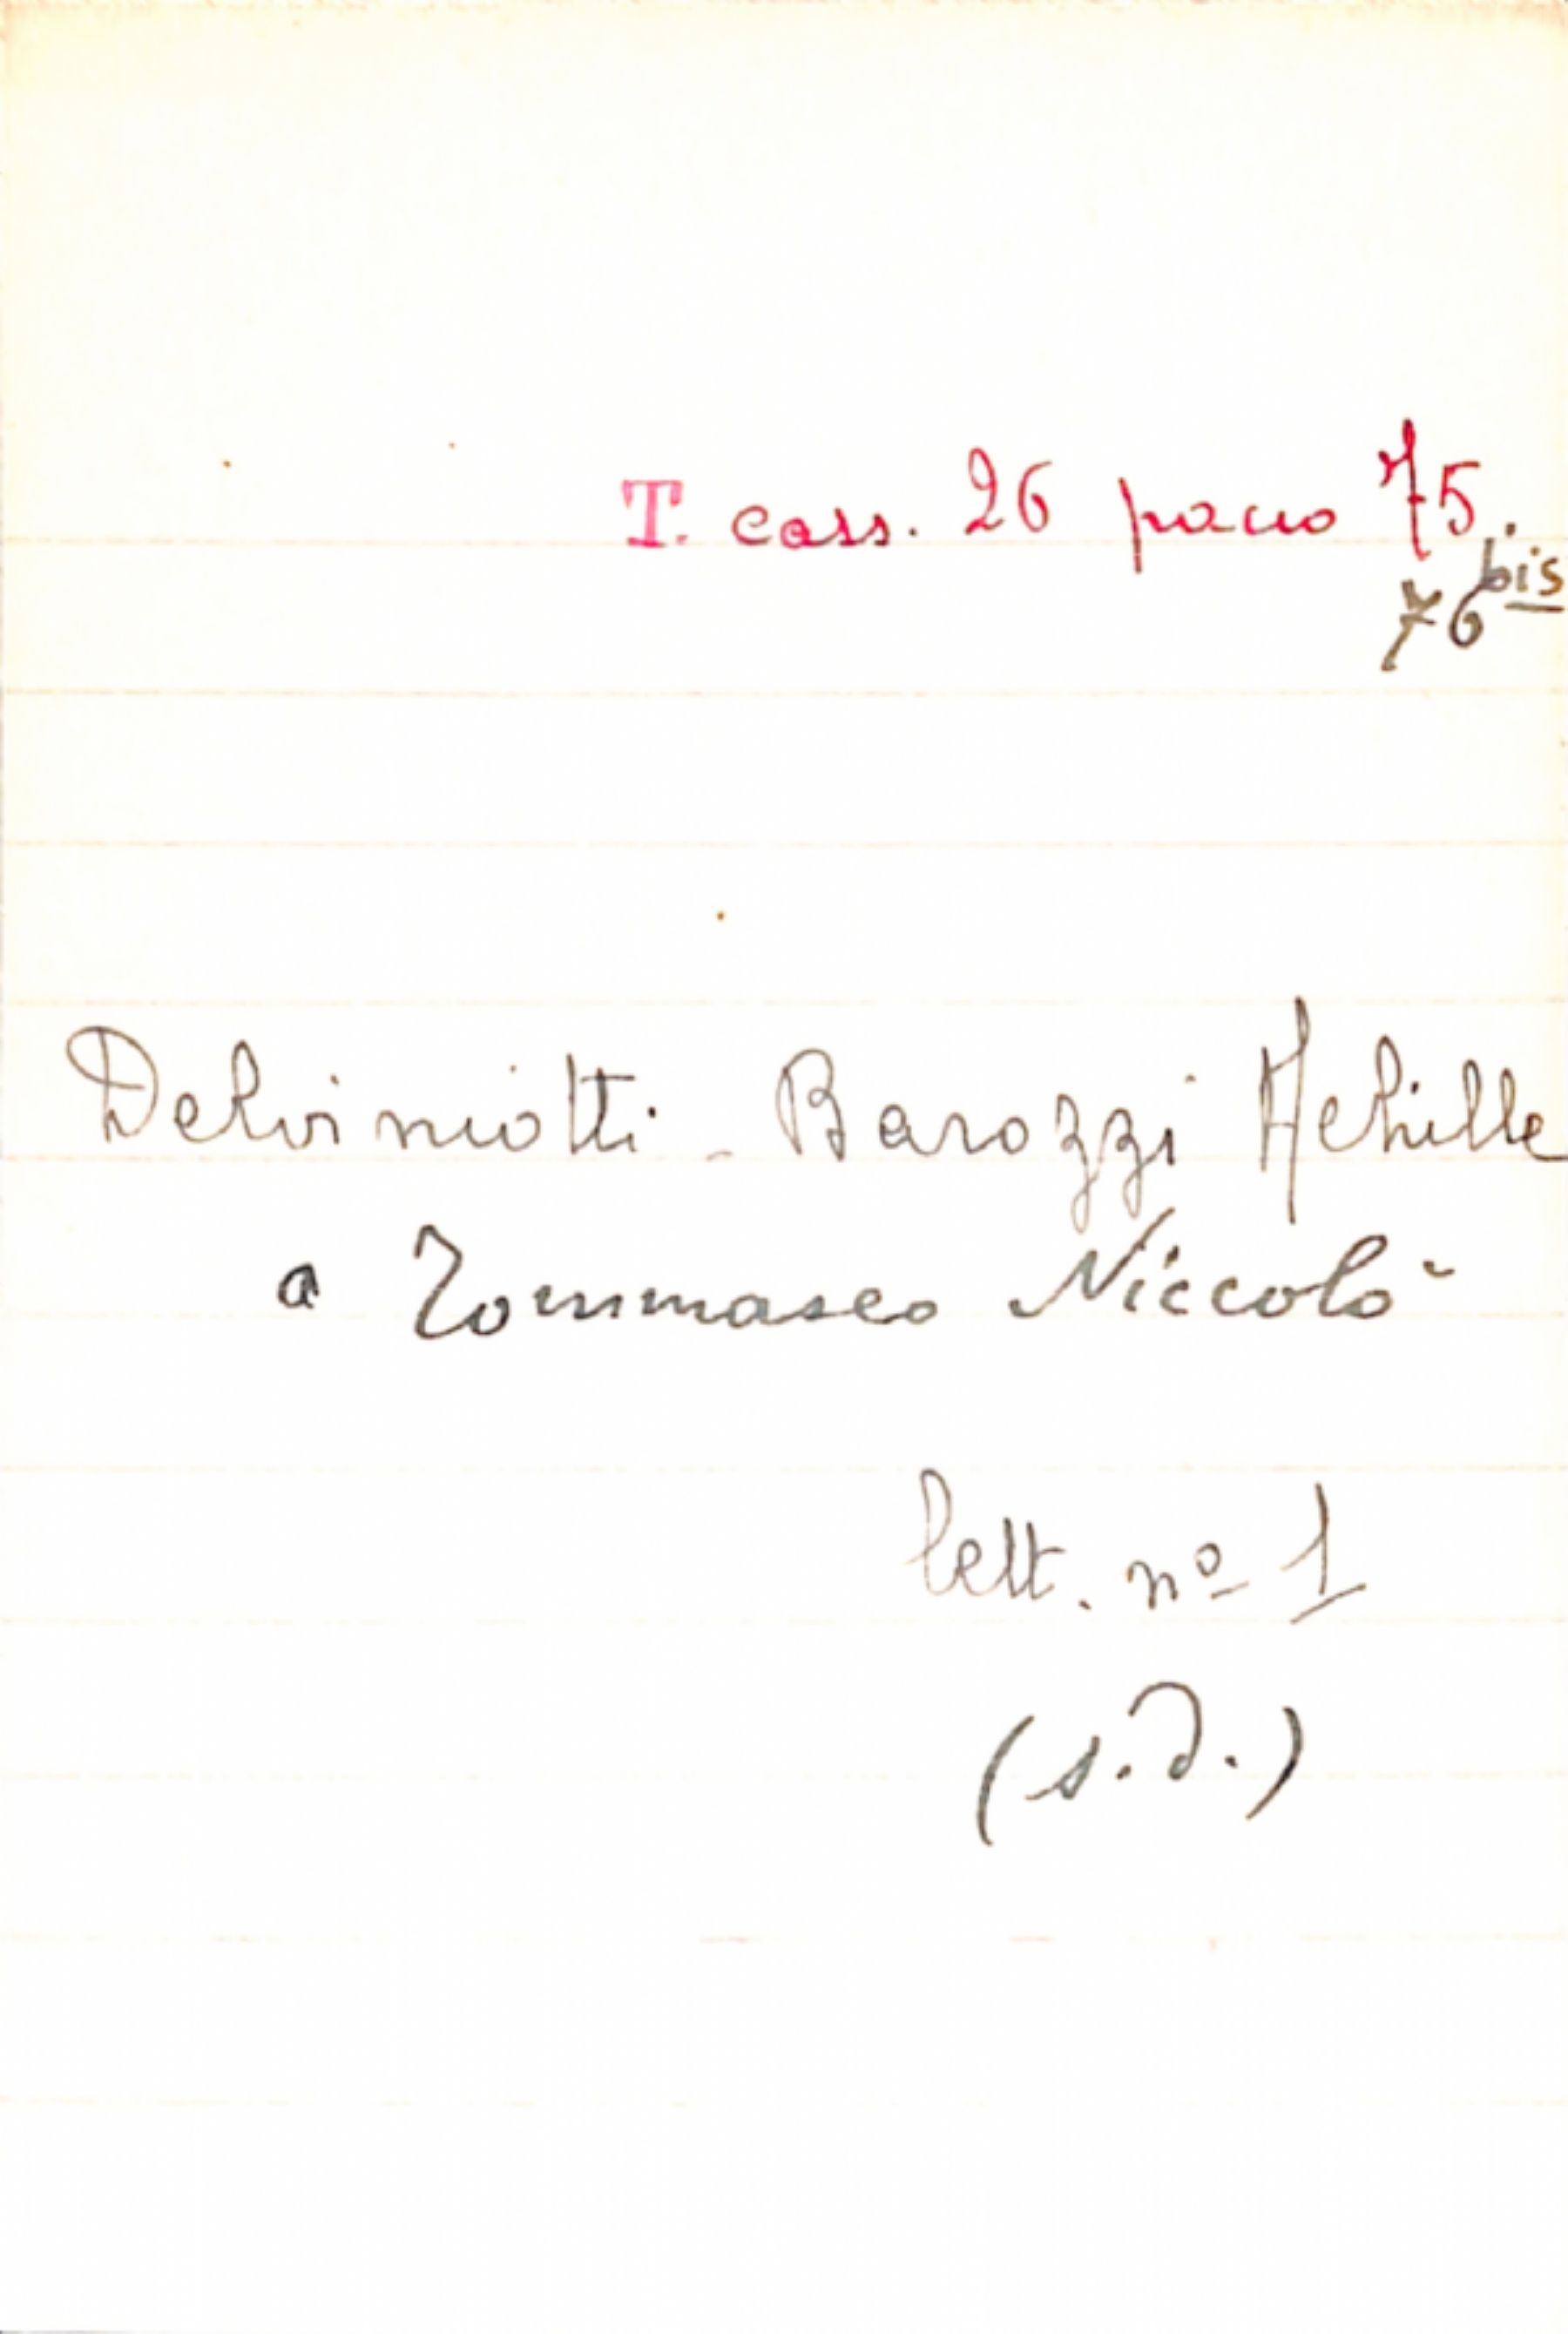 T. cass. 26 pacco 75.
76 bis
Delviniotti - Barozzi Achille
a Tommaseo Niccolò
lett. nº 1
(s.d.)